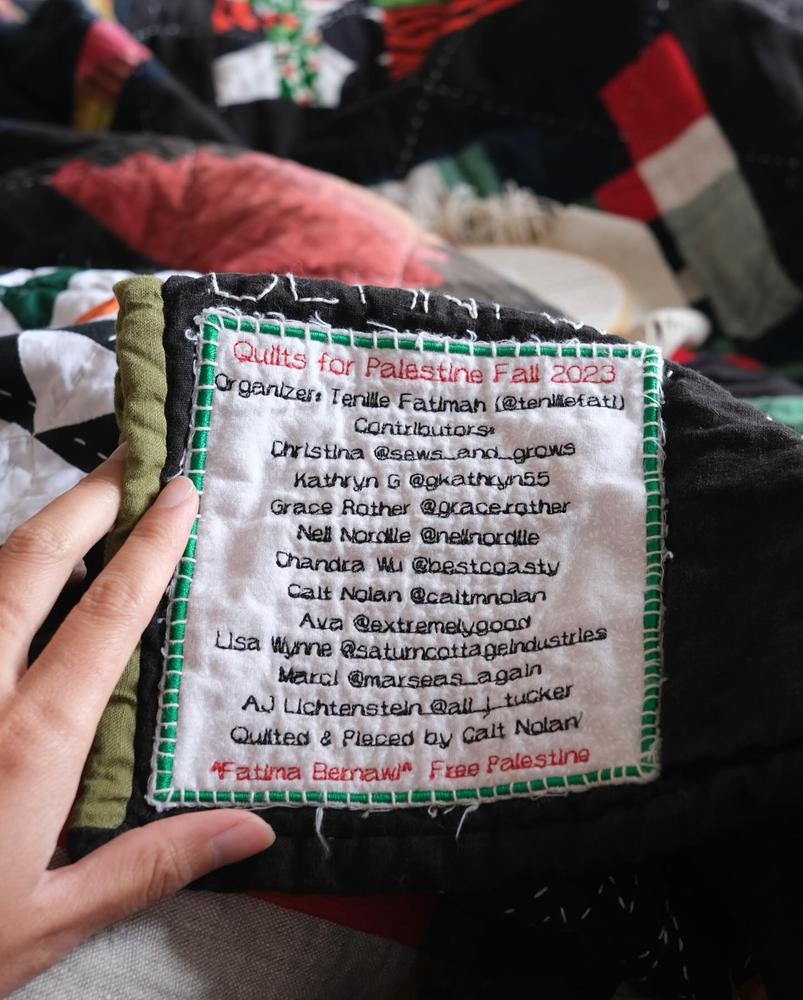 Quilts for Palestine Fall 2023
Organizer: Tenille Fatimah (@tenillefati)
Contributors:
Christina @sews_and_grows
Kathryn G @gkathryn55
Grace Rother @grace.rother
Nell Nordlie @nellnordlie
Chandra Wu @bestcoasty
Cait Nolan @caitmnolan
Ava @extremelygood
Lisa Wynne @saturncottageindustries
Marci @marseas_again
AJ Lichtenstein @all_j_tucker
Quilted & Pieced by Cait Nolan
"Fatima Bernawi" Free Palestine